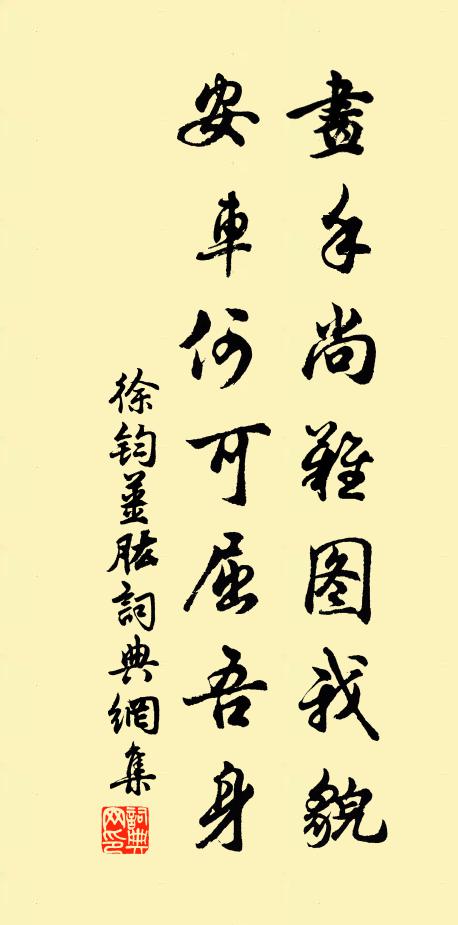 畫手尚難图我貌
安車何可屈吾身
徐鈞姜肱詞典網集
詞典
网印